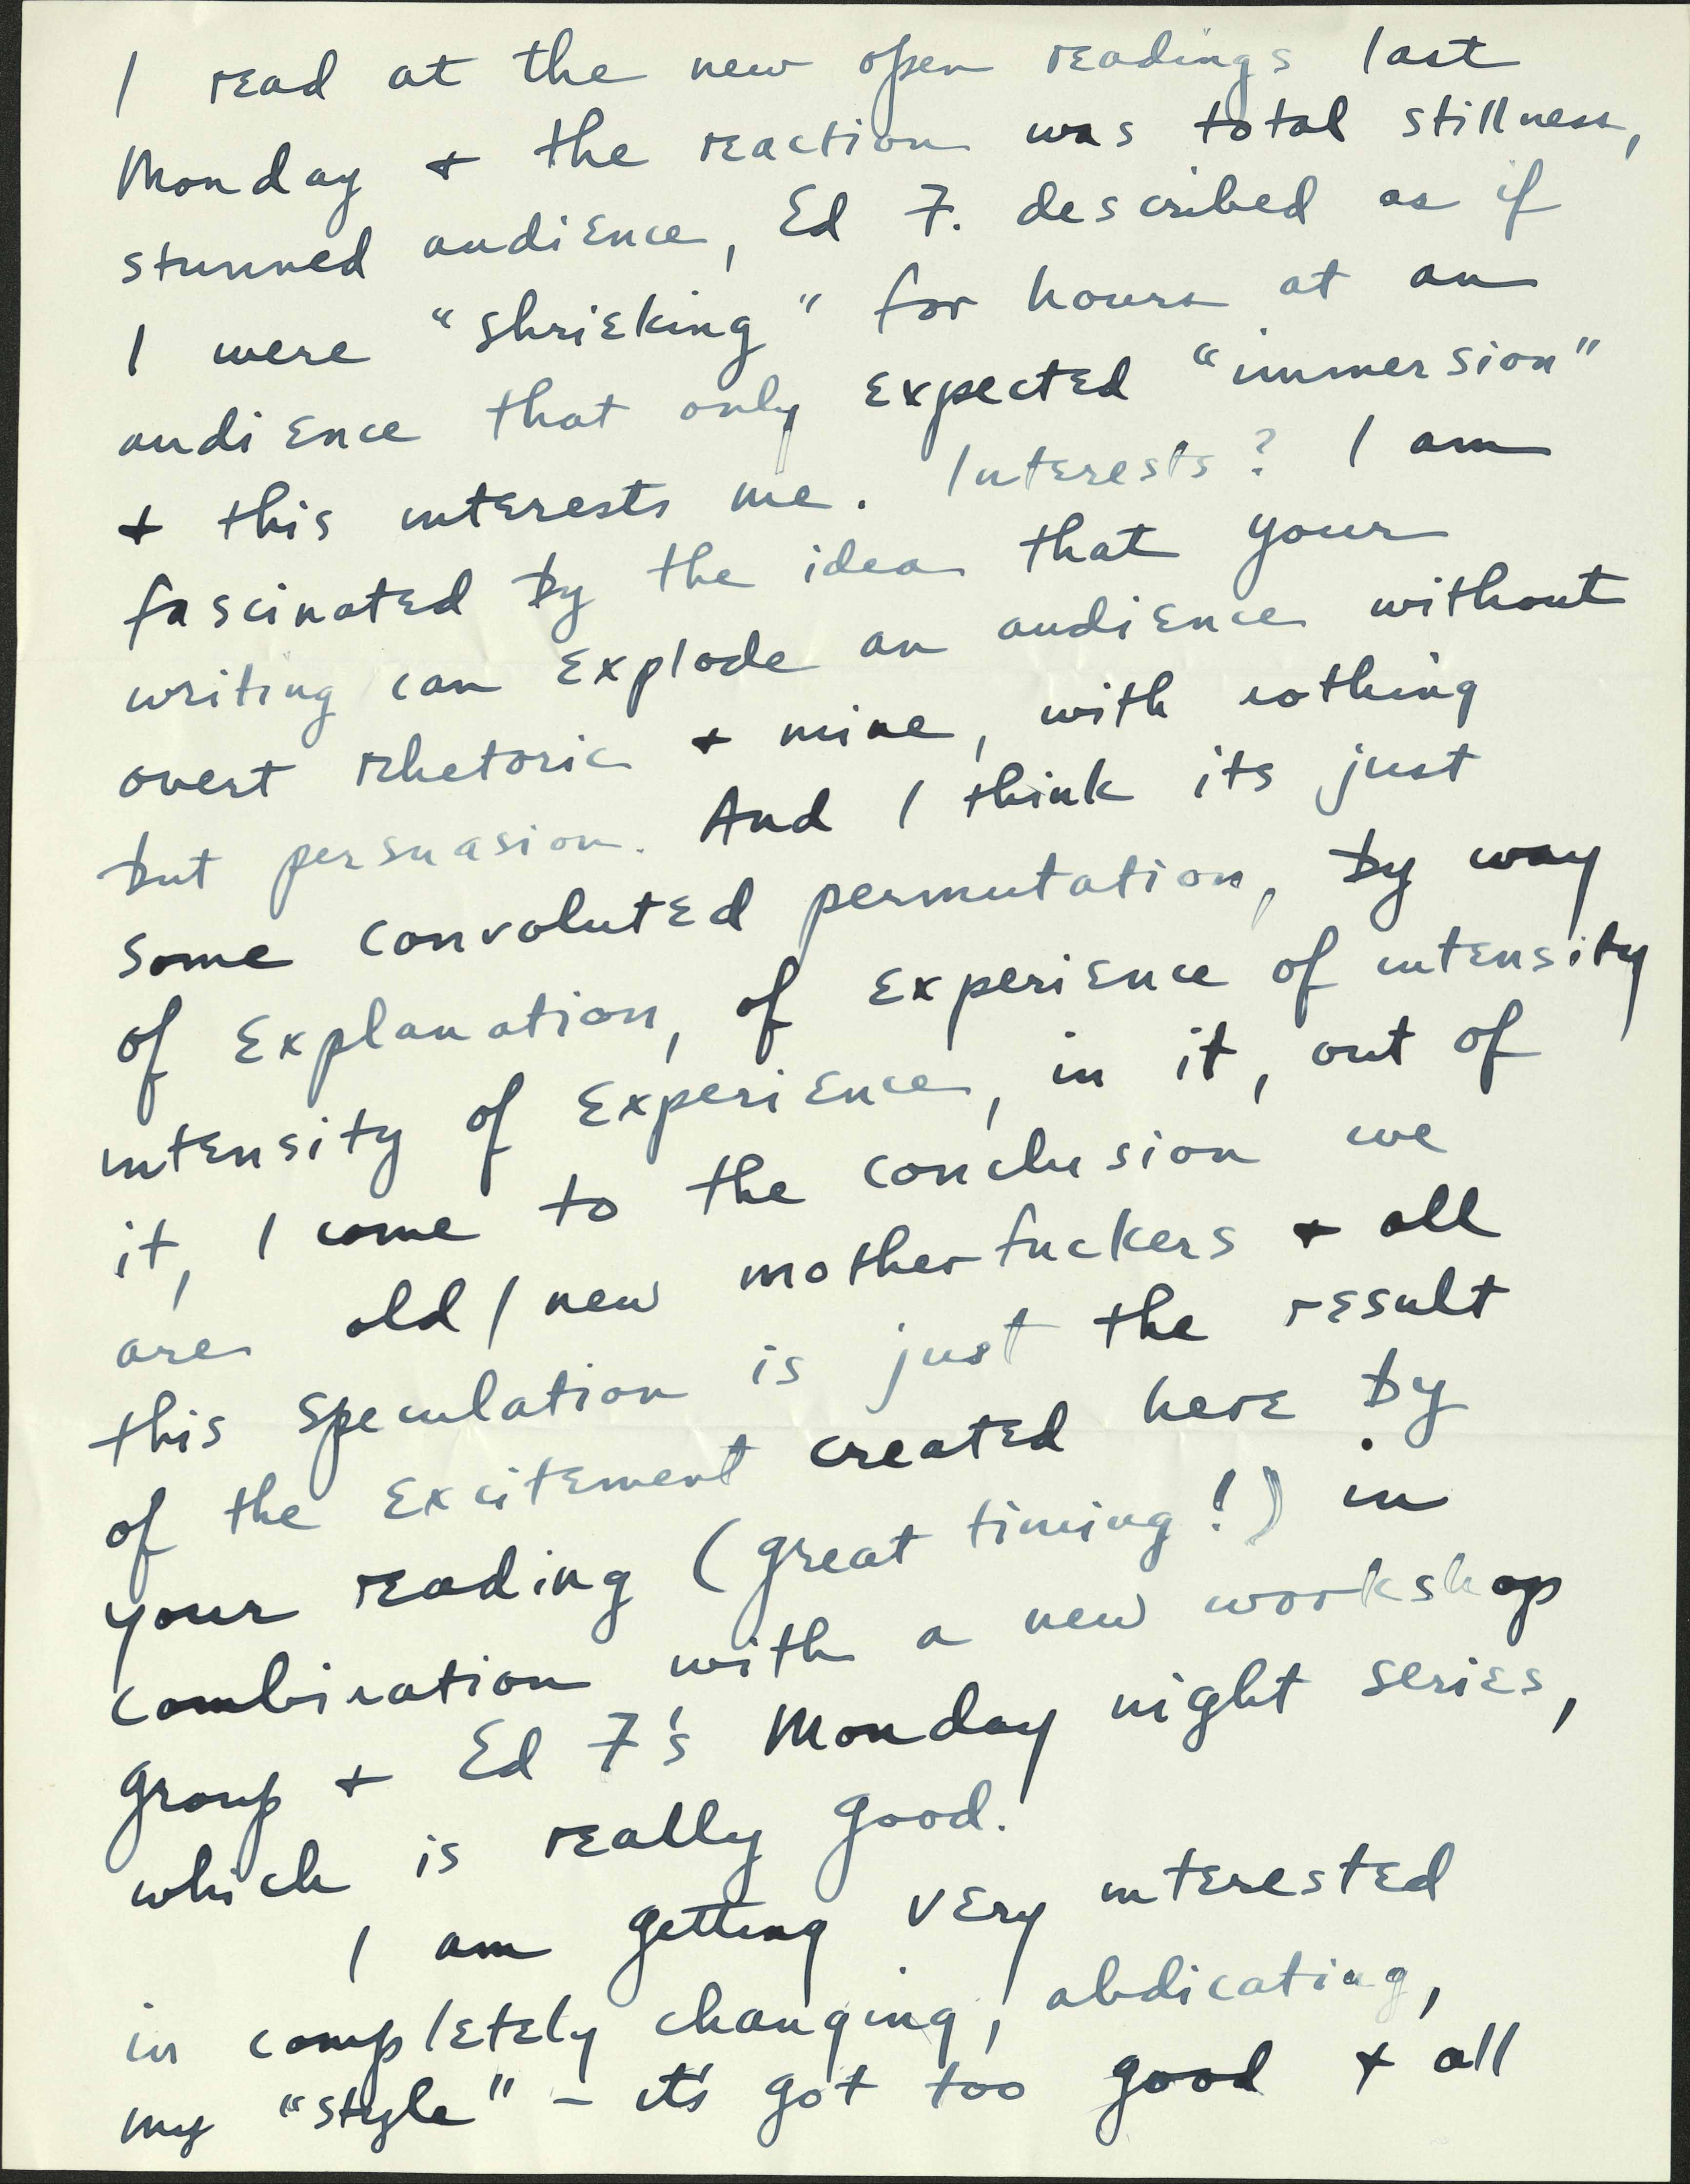 I read at the new open readings last
Monday + the reaction was total stillness,
stunned audience, Ed F. described as if
I were "shrieking" for hours at an
audience that only expected "immersion"
+ this interests me. Interests? I am
fascinated by the idea that your
writing can explode an audience without
overt rhetoric + mine, with nothing
but persuasion. And I think its just
some convoluted permutation, by way
of explanation, of experience of intensity
intensity of experience, in it, out of
it, I come to the conclusion we
are old/new motherfuckers + all
this speculation is just the result
of the excitement created here by
your reading (great timing!) in
combination with a new workshop
group + Ed F's Monday night series,
which is really good.
I am getting very interested
in completely changing, abdicating,
my "style" – it's got too good + all